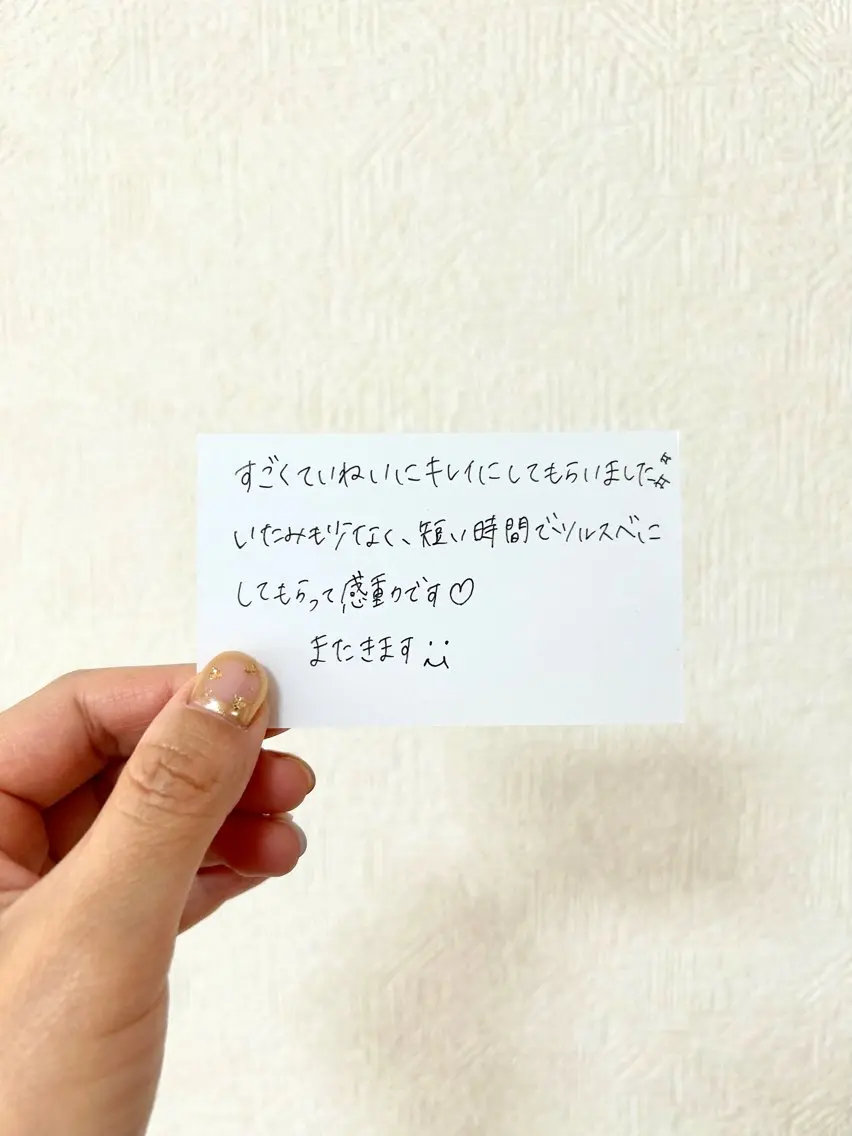 すごくていねいにキレイにしてもらいました☆☆
いたみも少なく、短い時間でツルスベに
してもらって感動です♡
またきます